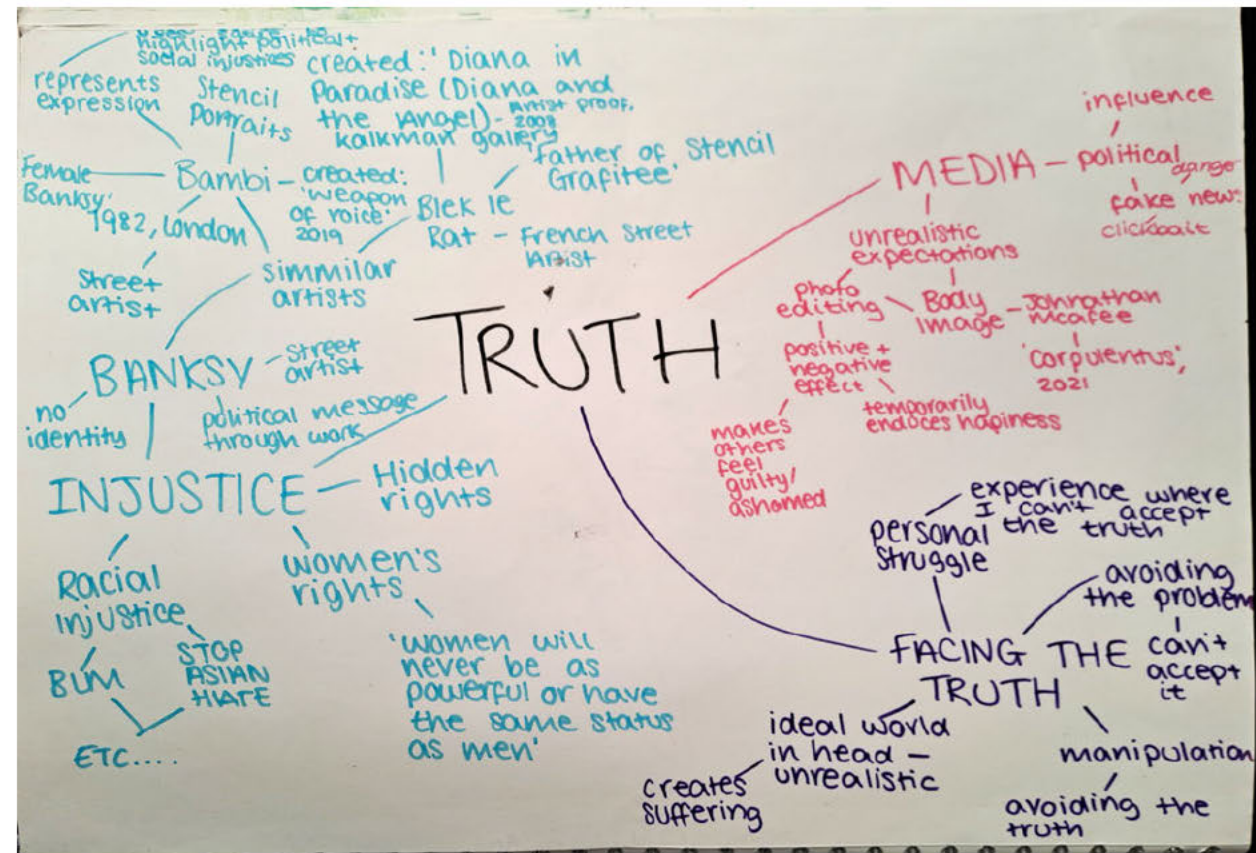 highlight political +
social injustices
represents
expression
Stencil
Portraits
created: 'Diana in
Paradise (Diana and
the Angel) - Artist proof,
2008
kalkman gallery
'Father of Stencil
Grafitee'
Female
Banksy'
Bambi - created:
'weapon
of voice'
2019
1982, London
Street
artist
Blek le
Rat - French Street
Artist
simmilar
artists
BANKSY - Street
artist
no
identity
political message
through work
TRUTH
INJUSTICE - Hidden
rights
Racial
Injustice
BLM
STOP
ASIAN
HATE
ETC....
women's
rights
'women will
never be as
powerful or have
the same status
as men'
MEDIA - political
influence
danger
fake news
clickbait
unrealistic
expectations
photo
editing
Body
Image - Johnathan
mcafee
'corpulentus',
2021
positive +
negative
effect
temporarily
endoces hapiness
makes
others
feel
guilty/
ashamed
FACING THE
TRUTH
personal
struggle
experience where
I can't accept
the truth
avoiding
the problem
can't
accept
it
ideal world
in head -
unrealistic
creates
suffering
manipulation
avoiding the
truth